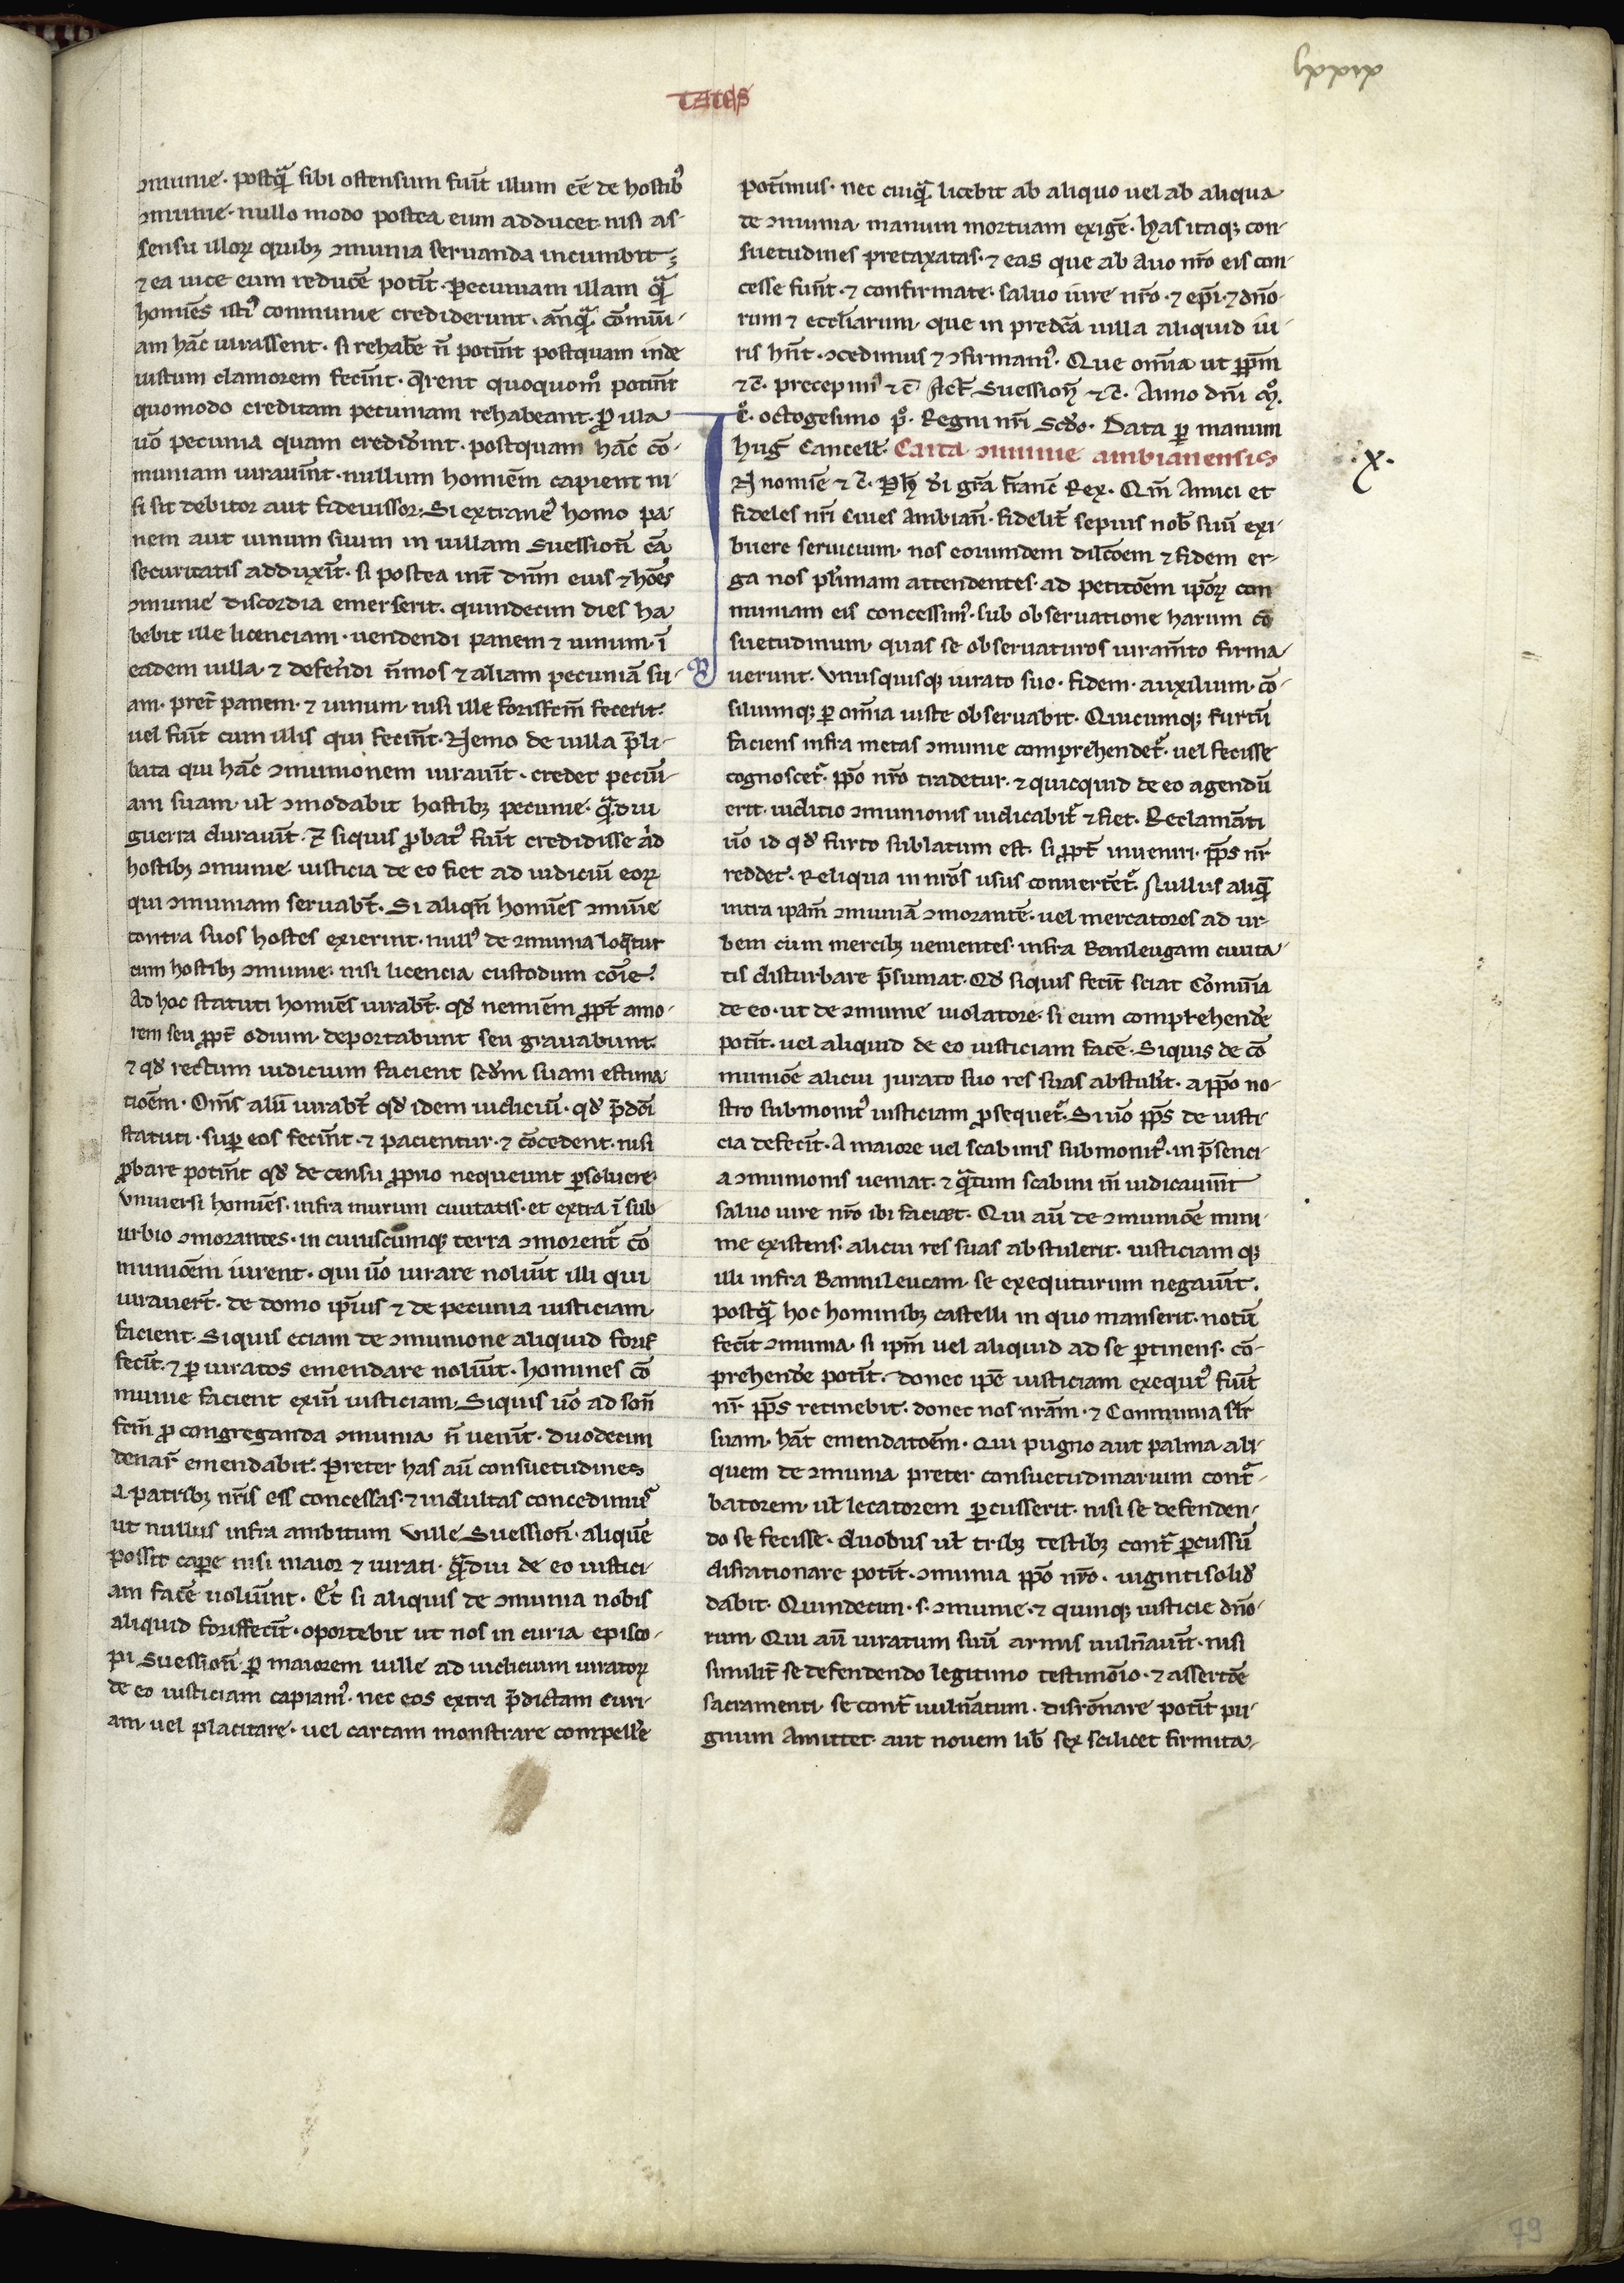 lxxix
TATES
ↄmunie. postq̃ sibi ostensum fuĩt illum eẽ de hostibꝰ
ↄmunie. nullo modo postea eum adducet. nisi as-
sensu illoꝝ quibꝫ ↄmunia seruanda incumbit;
⁊ ea uice eum reducẽ potĩt. Pecuniam illam q̃
homĩes istiꝰ communie crediderunt. anq̃. cõmuni-
am hãc iurassent. si rehabẽ ñ potĩnt postquam inde
iustum clamorem fecĩnt. q̃rent quoquom̊ potĩnt
quomodo creditam pecuniam rehabeant. ꝓ illa
uõ pecunia quam credidĩnt. postquam hãc cõ-
muniam iurauĩnt. nullum homĩem capient ni-
si sit debitor aut fideiussor. Si extraneꝰ homo pa-
nem aut uinum suum in uillam Suession̄ cã
securitatis adduxĩt. si postea int̃ dñm eius ⁊ hoẽs
ↄmunie discordia emerserit. quindecim dies ha
bebit ille licenciam. uendendi panem ⁊ uinum. ĩ
eadem uilla. ⁊ defẽndi ñmos ⁊ aliam pecuniã su-
am. pret̃ panem. ⁊ uinum. nisi ille forisfcm̃ fecerit.
uel fuĩt cum illis qui fecĩnt. Nemo de uilla p̃li-
bata qui hãc ↄmunionem iurauĩt. credet pecũi-
am suam. ul̃ ↄmodabit hostibꝫ pecunie. q̃diu
guerra durauĩt. ⁊ siquis ꝓbatꝰ fuĩt credidisse aid
hostibꝫ ↄmunie iusticia de eo fiet ad iudiciũ eoꝝ
qui ↄmuniam seruabt̃. Si aliqñ homĩes ↄmũie
contra suos hostes exierint. nullꝰ de ↄmunia loq̃tur
cum hostibꝫ ↄmunie. nisi licencia custodum cõie.
Ad hoc statuti homĩes iurabt̃. qd̃ nemĩem ꝓpt̃ amo-
rem seu ꝓpt̃ odium. deportabunt seu grauabunt.
⁊ qd̃ rectum iudicium facient scd̃m suam estima-
tiõem. Om̃s alii iurabt̃ qd̃ idem iudiciũ. qd̃ p̃dc̃i
statuti. suꝑ eos fecĩnt. ⁊ pacientur. ⁊ cõcedent. nisi
ꝓbare potĩnt qd̃ de censu ꝓprio nequeunt ꝑsoluere.
Vniuersi homĩes. infra murum ciuitatis. et extra ĩ sub
urbio ↄmorantes. in cuiuscumqꝫ terra ↄmorent᷑ cõ
muniõem iurent. qui uõ iurare noluĩt illi qui
iurauert̃. de domo ip̃ius ⁊ de pecunia iusticiam
facient. Siquis eciam de ↄmunione aliquid forif̃
fecĩt. ⁊ ꝑ iuratos emendare noluĩt. homines cõ
munie facient exiñ iusticiam. Siquis uõ ad soñ
fcm̃ ꝓ congreganda ↄmunia ñ uenĩt. duodecim
denar̃ emendabit. Preter has aũ consuetudines
a patribꝫ nr̃is eis concessas. ⁊ indultas concedimꝰ
ut nullus infra ambitum ville Suession̄. aliquẽ
possit caꝑe nisi maior ⁊ iurati. q̃diu de eo iustici-
am facẽ uoluĩnt. Et si aliquis de ↄmunia nobis
aliquid forisfecĩt. oportebit ut nos in curia episco-
pi Suession̄. ꝑ maiorem uille ad iudicium iuratoꝝ
de eo iusticiam capiamꝰ. nec eos extra p̃dictam curi-
am. uel placitare. uel cartam monstrare compellẽ
potĩmus. nec cuiq̃ licebit ab aliquo uel ab aliqua
de ↄmunia manum mortuam exigẽ. Has itaqꝫ con-
suetudines pretaxatas. ⁊ eas que ab auo nr̃o eis con-
cesse fũnt. ⁊ confirmate. saluo iure nr̃o. ⁊ epĩ. ⁊ dño-
rum ⁊ eccl̃iarum. que in predc̃a uilla aliquid iu-
ris hñt. ↄcedimus ⁊ ↄfirmamꝰ. Que om̃ia ut ꝑpm̃
⁊c̃. precepimꝰ ⁊c̃ Act̃ Suession̄ ⁊c̃. Anno dñi M̊.
c̊. octogesimo p̊. Regni nr̃i Scd̃o. Data ꝑ manum
hug̃ Cancell̃. Carta ↄmunie ambianensis
.x.
IN nomiẽ ⁊c̃. Ph̃ di gr̃a Franc̃ Rex. Qm̃ Amici et
fideles nr̃i Ciues Ambian̄. fidelit̃ sepius nob̃ suũ exi-
buere seruicium. nos eorumdem dilc̃oem ⁊ fidem er-
ga nos pl̃imam attendentes. ad petitõem ip̃oꝝ com
muniam eis concessimꝰ. sub obseruatione harum cõ
suetudinum. quas se obseruaturos iuram̃to firma-
uerunt. Vnusquisqꝫ iurato suo. fidem. auxilium. cõ-
siliumqꝫ ꝑ om̃ia iuste obseruabit. Quicumqꝫ furtũ
faciens infra metas ↄmunie comprehendet᷑. uel fecisse
cognoscet᷑. ꝑpo nr̃o tradetur. ⁊ quicquid de eo agendũ
erit. iudicio ↄmunionis iudicabit᷑ ⁊ fiet. Reclamãti
uõ id qd̃ furto sublatum est. si ꝓpt̃ inueniri. ꝑps nr̃
reddet. Reliqua in nr̃os usus conuertet᷑. Nullus aliq̃
intra ip̃am ↄmuniã ↄmorantẽ. uel mercatores ad ur-
bem cum mercibꝫ uenientes. infra Banleugam ciuita-
tis disturbare p̃sumat. Qd̃ siquis fecĩt sciat Cõmunia
de eo. ut de ↄmunie uiolatore. si eum comprehendẽ
potĩt. uel aliquid de eo iusticiam facẽ. Siquis de cõ
muniõe alicui iurato suo res suas abstulĩt. a ꝑpo no-
stro submonitꝰ iusticiam ꝓsequet᷑. Si uõ ꝑps de iusti-
cia defecĩt. A maiore uel scabinis submonitꝰ. in p̃senci-
a ↄmunionis ueniat. ⁊ q̃tum scabini iñ iudicauĩnt
saluo iure nr̃o ibi faciat. Qui aũ de ↄmuniõe mini-
me existens. alicui res suas abstulerit. iusticiam qꝫ
illi infra Bannileucam. se exequturum negauĩt.
postq̃ hoc hominibꝫ castelli in quo manserit. notũ
fecĩt ↄmunia. si ip̃m uel aliquid ad se ꝑtinens. cõ-
prehendẽ potĩt. donec ip̃e iusticiam exequtꝰ fuĩt
nr̃ ꝑps retinebit. donec nos nr̃am. ⁊ Communia sil̃r
suam. hãt emendatoẽm. Qui pugno aut palma ali-
quem de ↄmunia preter consuetudinarium cont᷑-
batorem. ul̃ lecatorem ꝑcusserit. nisi se defenden-
do se fecisse. duobus ul̃ tribꝫ testibꝫ cont̃ ꝑcussũ
disrationare potĩt. ↄmunia ꝑpo nr̃o. uiginti solid̃
dabit. Quindecim. s. ↄmunie. ⁊ quinqꝫ iusticie dño-
rum. Qui aũ iuratum suũ armis uuln̄auĩt. nisi
similit̃ se defendendo legitimo testimõio. ⁊ assertõe
sacramenti. se cont̃ uuln̄atum. disrõnare potĩt pu-
gnum Amittet. aut nouem lib̃ sex scilicet firmita-
79